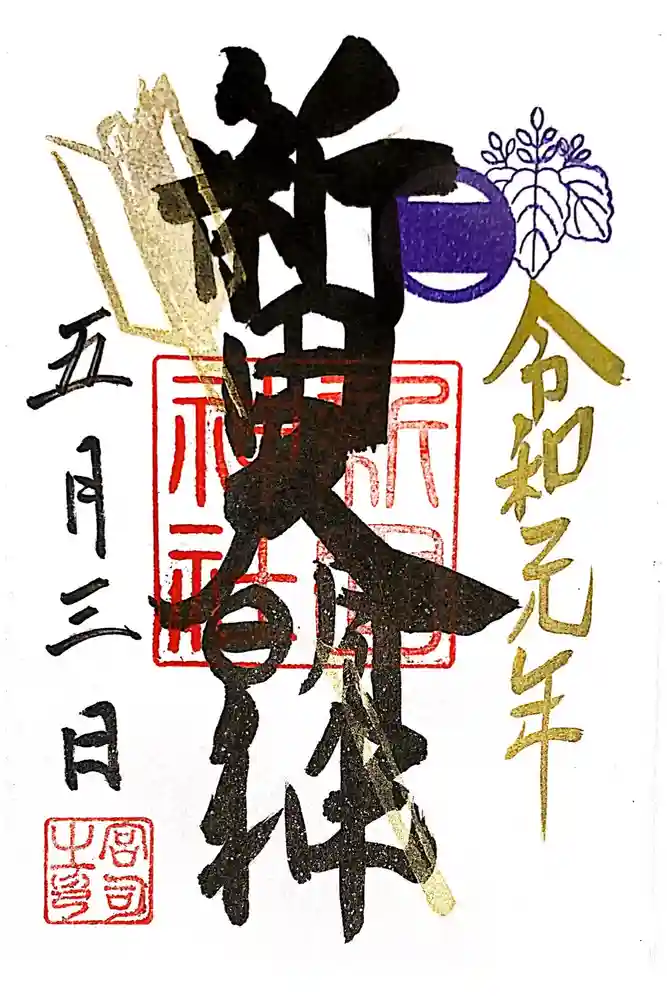 令和元年
新田大明神
新田
神社
五月三日
宮司
之印